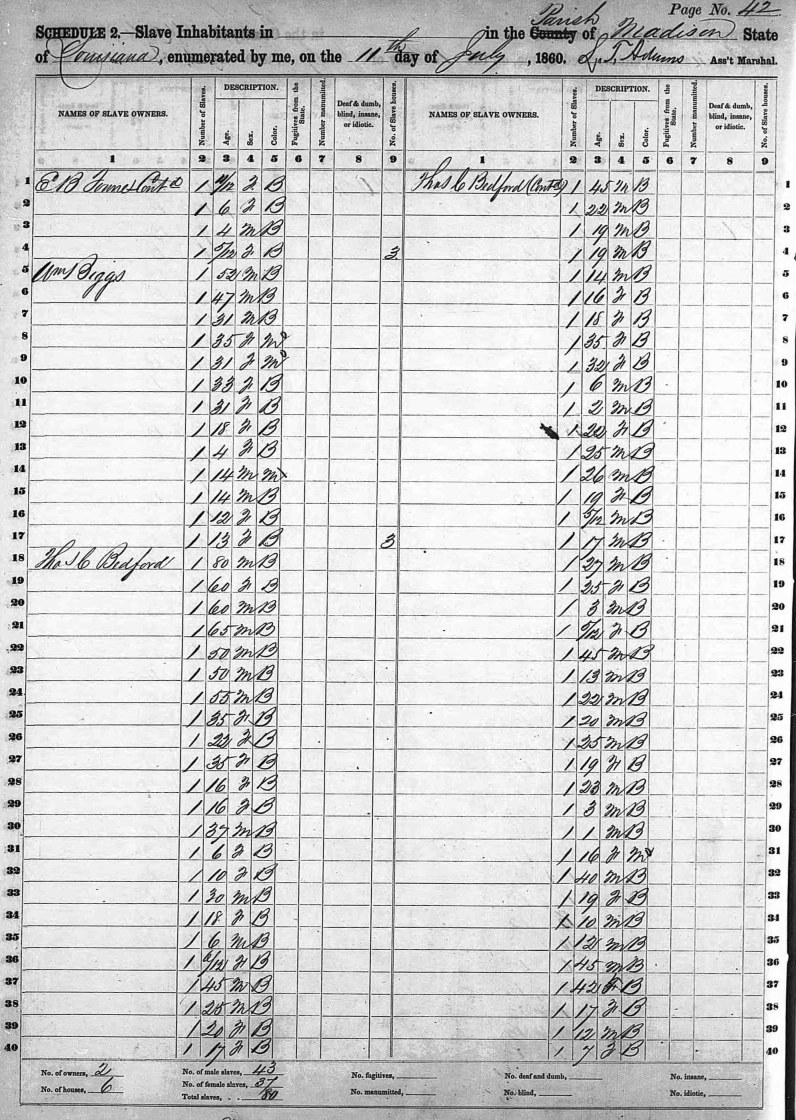 Page No. 42
SCHEDULE 2.—Slave Inhabitants in in the County Parish of Madison State
of Louisiana, enumerated by me, on the 11th day of July, 1860. S. T. Adams Ass't Marshal.
NAMES OF SLAVE OWNERS. Number of Slaves. DESCRIPTION. Age. Sex. Color. Fugitives from the State. Number manumitted. Deaf & dumb, blind, insane, or idiotic. No. of Slave houses. NAMES OF SLAVE OWNERS. Number of Slaves. DESCRIPTION. Age. Sex. Color. Fugitives from the State. Number manumitted. Deaf & dumb, blind, insane, or idiotic. No. of Slave houses.
1 2 3 4 5 6 7 8 9 1 2 3 4 5 6 7 8 9
1 E B Contd 1 F B Thos C Bedford (Contd) 1 45 M B 1
2 1 6 F B 1 22 M B 2
3 1 4 M B 1 19 M B 3
4 1 5/12 F B 3 1 19 M B 4
5 Wm Biggs 1 52 M B 1 14 M B 5
6 1 47 M B 1 16 F B 6
7 1 31 M B 1 18 F B 7
8 1 35 F M 1 35 F B 8
9 1 31 F M 1 32 F B 9
10 1 33 F B 1 6 M B 10
11 1 31 F B 1 2 M B 11
12 1 18 F B 1 22 F B 12
13 1 4 F B 1 25 M B 13
14 1 14 M M 1 26 M B 14
15 1 14 M B 1 19 F B 15
16 1 12 F B 1 5/12 M B 16
17 1 13 F B 3 1 17 M B 17
18 Thos C Bedford 1 80 M B 1 27 M B 18
19 1 60 F B 1 25 F B 19
20 1 60 M B 1 3 M B 20
21 1 65 M B 1 5/12 F B 21
22 1 50 M B 1 45 M B 22
23 1 50 M B 1 13 M B 23
24 1 55 M B 1 22 M B 24
25 1 35 F B 1 20 M B 25
26 1 22 F B 1 25 M B 26
27 1 35 F B 1 19 F B 27
28 1 16 F B 1 23 M B 28
29 1 16 F B 1 3 M B 29
30 1 37 M B 1 1 M B 30
31 1 6 F B 1 16 F M 31
32 1 10 F B 1 40 M B 32
33 1 30 M B 1 19 F B 33
34 1 18 F B 1 10 M B 34
35 1 6 M B 1 12 M B 35
36 1 6/12 F B 1 45 M B 36
37 1 45 M B 1 42 F B 37
38 1 25 M B 1 17 F B 38
39 1 20 F B 1 12 M B 39
40 1 17 F B 1 7 F B 40
No. of owners, 2 No. of male slaves, 43 No. fugitives, No. deaf and dumb, No. insane,
No. of houses, 6 No. of female slaves, 37 No. manumitted, No. blind, No. idiotic,
Total slaves, 80